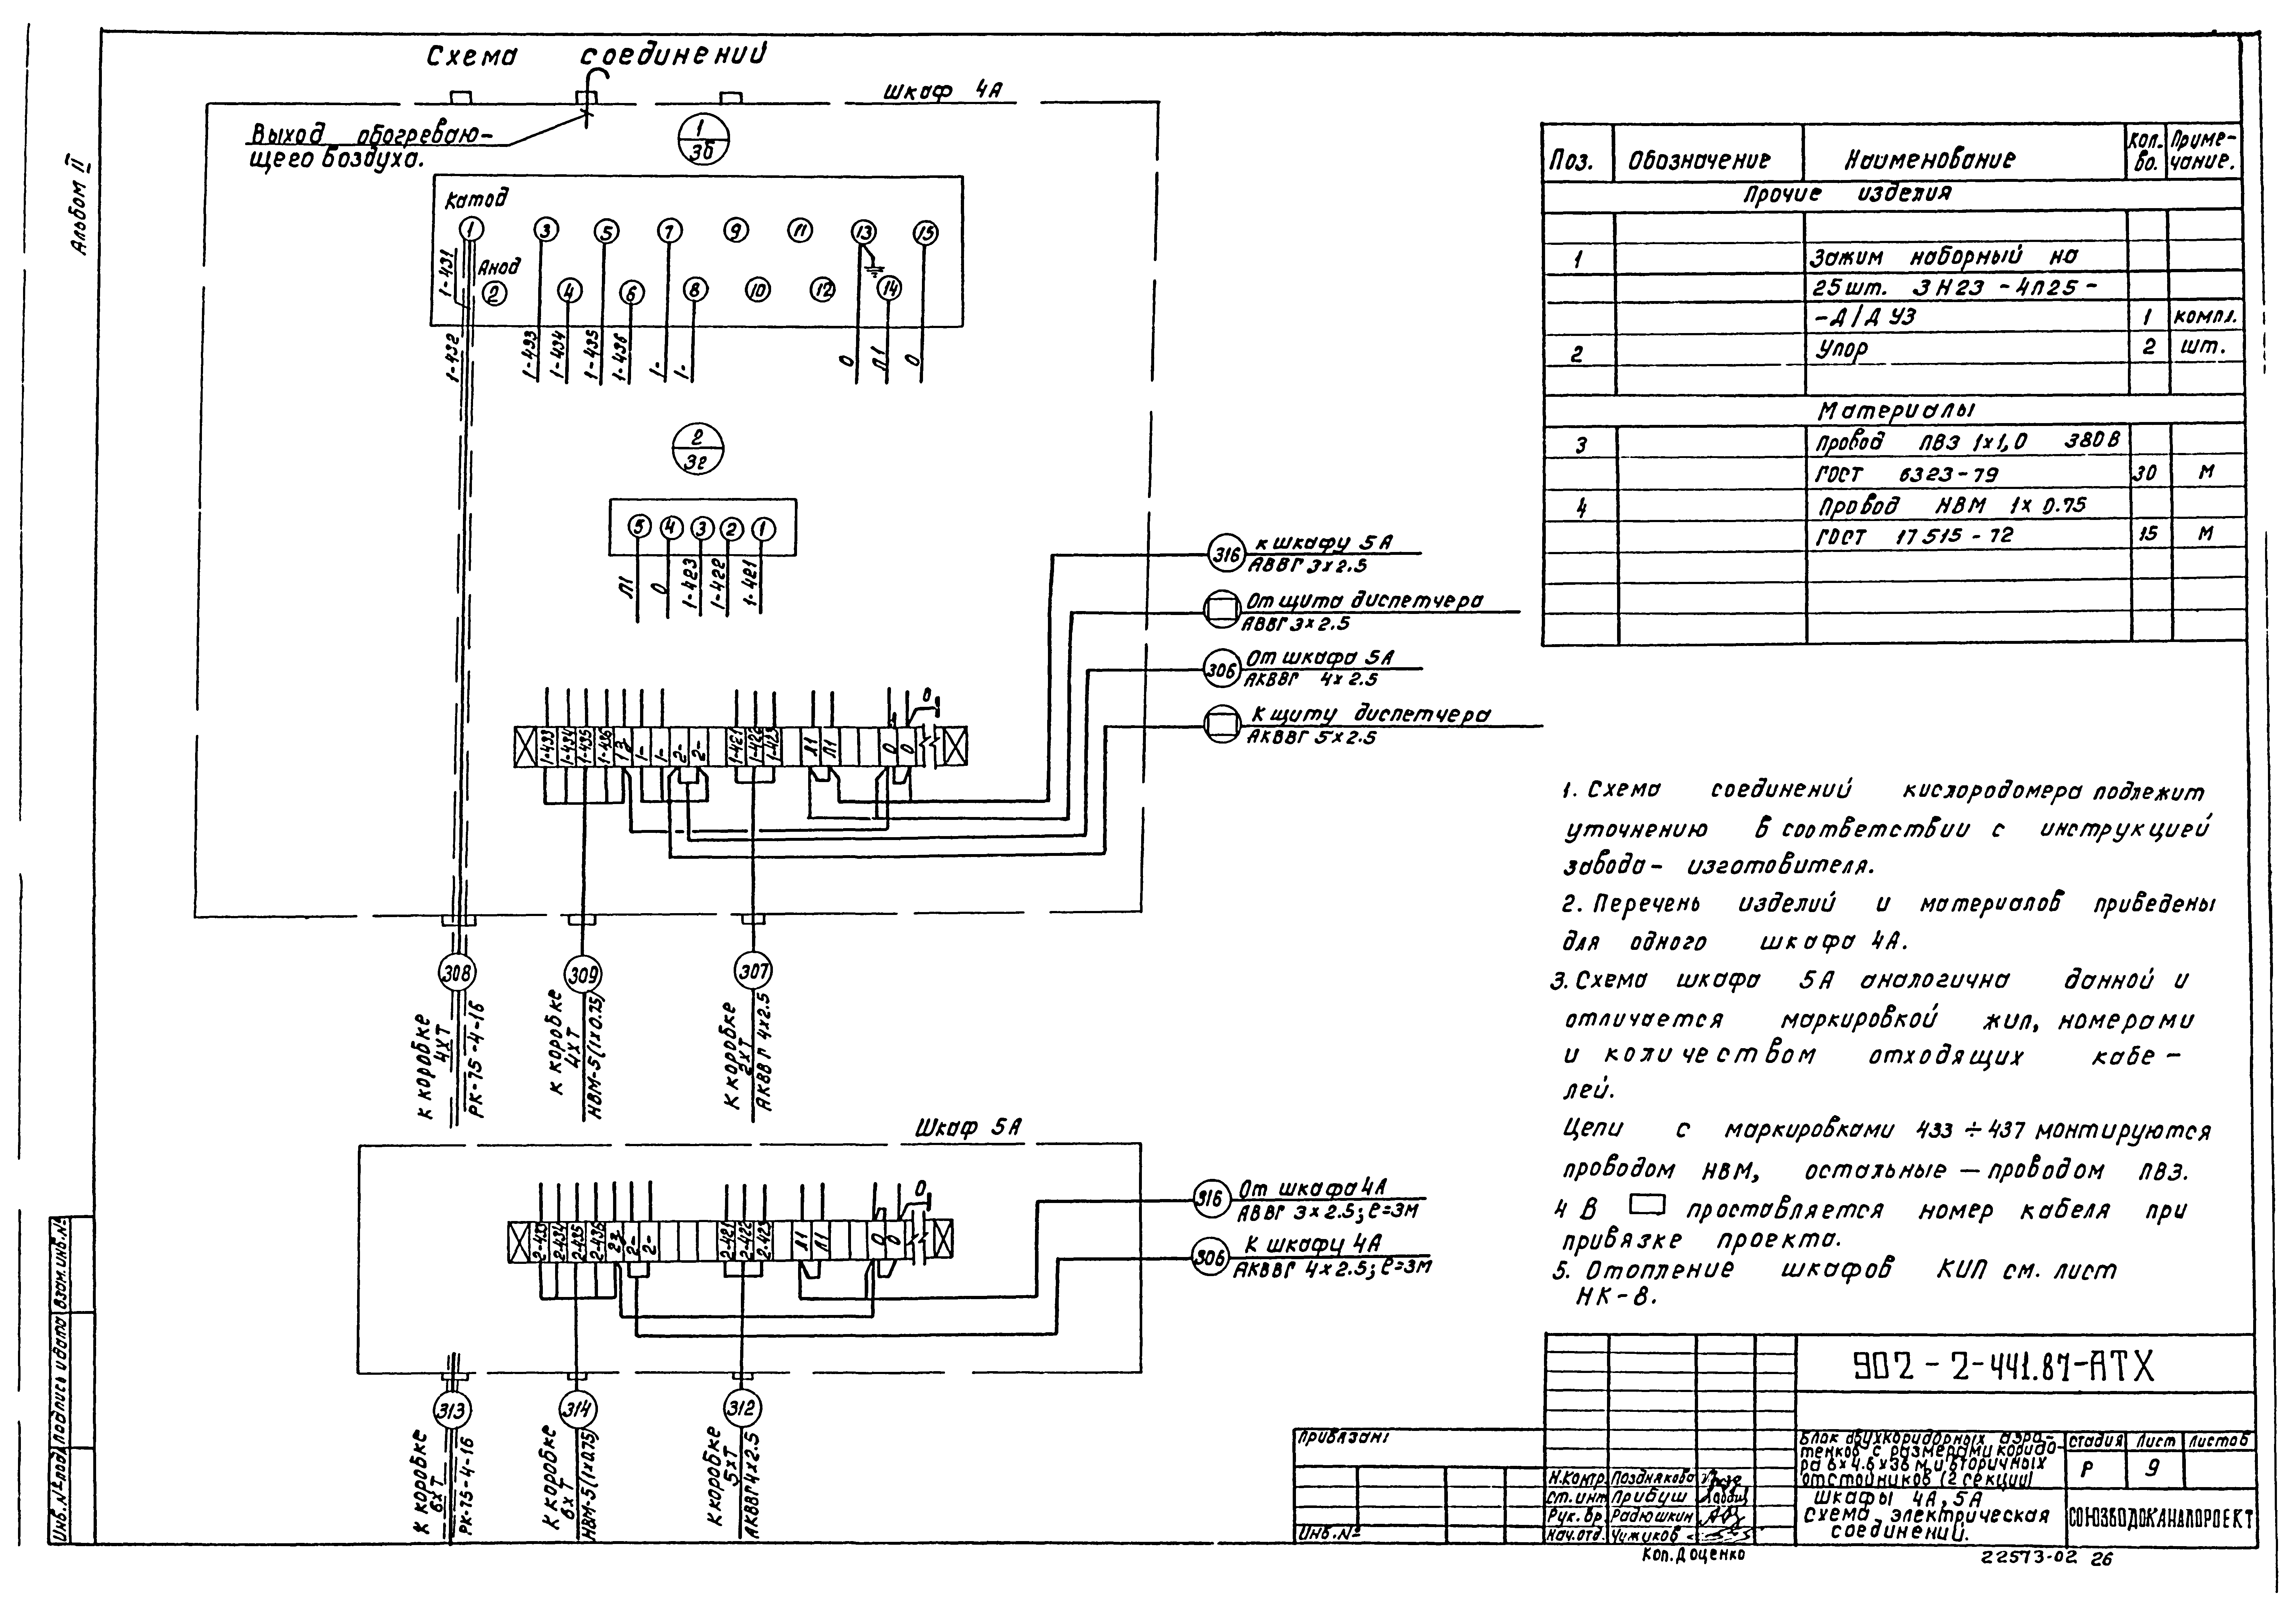 Схема соединений
Альбом II
Шкаф 4А
Выход обогреваю-
щего воздуха.
1
3б
Катод
1 3 5 7 9 11 13 15
Анод
2 4 6 8 10 12 14
1-431
1-432
1-433
1-434
1-435
1-436
1-
1-
0
Л1
0
2
3г
5 4 3 2 1
Л1
0
1-423
1-422
1-421
316 к шкафу 5А
АВВГ 3х2.5
От щита диспетчера
АВВГ 3х2.5
306 От шкафа 5А
АКВВГ 4х2.5
К щиту диспетчера
АКВВГ 5х2.5
0
1-433 1-434 1-435 1-436 13 1- 1- 2- 2- 1-421 1-422 1-423 Л1 Л1 0 0
308
309
307
К коробке
4хТ
РК-75-4-16
К коробке
4хТ
НВМ-5(1х0.75)
К коробке
2хТ
АКВВГ 4х2.5
Шкаф 5А
0
2-433 2-434 2-435 2-436 23 2- 2- 2-421 2-422 2-423 Л1 Л1 0 0
316 От шкафа 4А
АВВГ 3х2.5; ℓ=3м
306 К шкафу 4А
АКВВГ 4х2.5; ℓ=3м
313
314
312
К коробке
6хТ
РК-75-4-16
К коробке
6хТ
НВМ-5(1х0.75)
К коробке
5хТ
АКВВГ 4х2.5
Поз. Обозначение Наименование Кол-во. Примечание.
Прочие изделия
1 Зажим наборный на
25шт. ЗН23-4П25-
-Д/Д У3 1 компл.
2 Упор 2 шт.
Материалы
3 Провод ПВ3 1х1,0 380В
ГОСТ 6323-79 30 м
4 Провод НВМ 1х0.75
ГОСТ 17515-72 15 м
1. Схема соединений кислородомера подлежит
уточнению в соответствии с инструкцией
завода-изготовителя.
2. Перечень изделий и материалов приведены
для одного шкафа 4А.
3. Схема шкафа 5А аналогична данной и
отличается маркировкой жил, номерами
и количеством отходящих кабе-
лей.
Цепи с маркировками 433÷437 монтируются
проводом НВМ, остальные — проводом ПВ3.
4 В проставляется номер кабеля при
привязке проекта.
5. Отопление шкафов КИП см. лист
НК-8.
902-2-441.87-АТХ
Блок двухкоридорных аэро-
тенков с размерами коридо-
ра 6х4.6х36 м и вторичных
отстойников (2 секции)
Стадия Лист Листов
Р 9
Шкафы 4А, 5А
Схема электрическая
соединений.
СОЮЗВОДОКАНАЛПРОЕКТ
Привязан:
Инв.№
Н.Контр. Позднякова
Ст.инж Прибуш
Рук.бр. Радюшкин
Нач.отд. Чижиков
Коп. Доценко
22573-02 26
Инв.№ подл. Подпись и дата Взам.инв.№